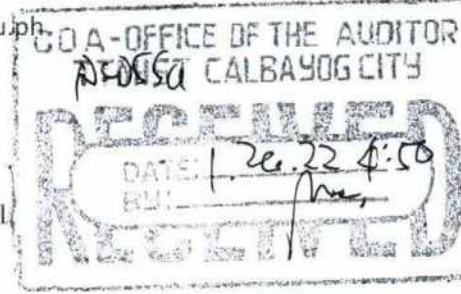 u.ph
COA-OFFICE OF THE AUDITOR
CALBAYOG CITY
RECEIVED
DATE: 1.26.22 4:50
BY: